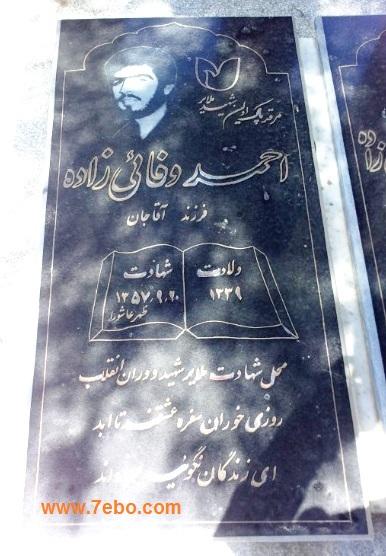 مرقد پاک اولین شهید ملایر
احمد وفائی زاده
فرزند آقاجان
ولادت
۱۳۳۹
شهادت
۱۳۵۷،۹،۲۰
ظهر عاشورا
محل شهادت ملایر شهید دوران انقلاب
روزی خوران سفره عشقند تا ابد
ای زندگان خاک نگوئید
www.7ebo.com